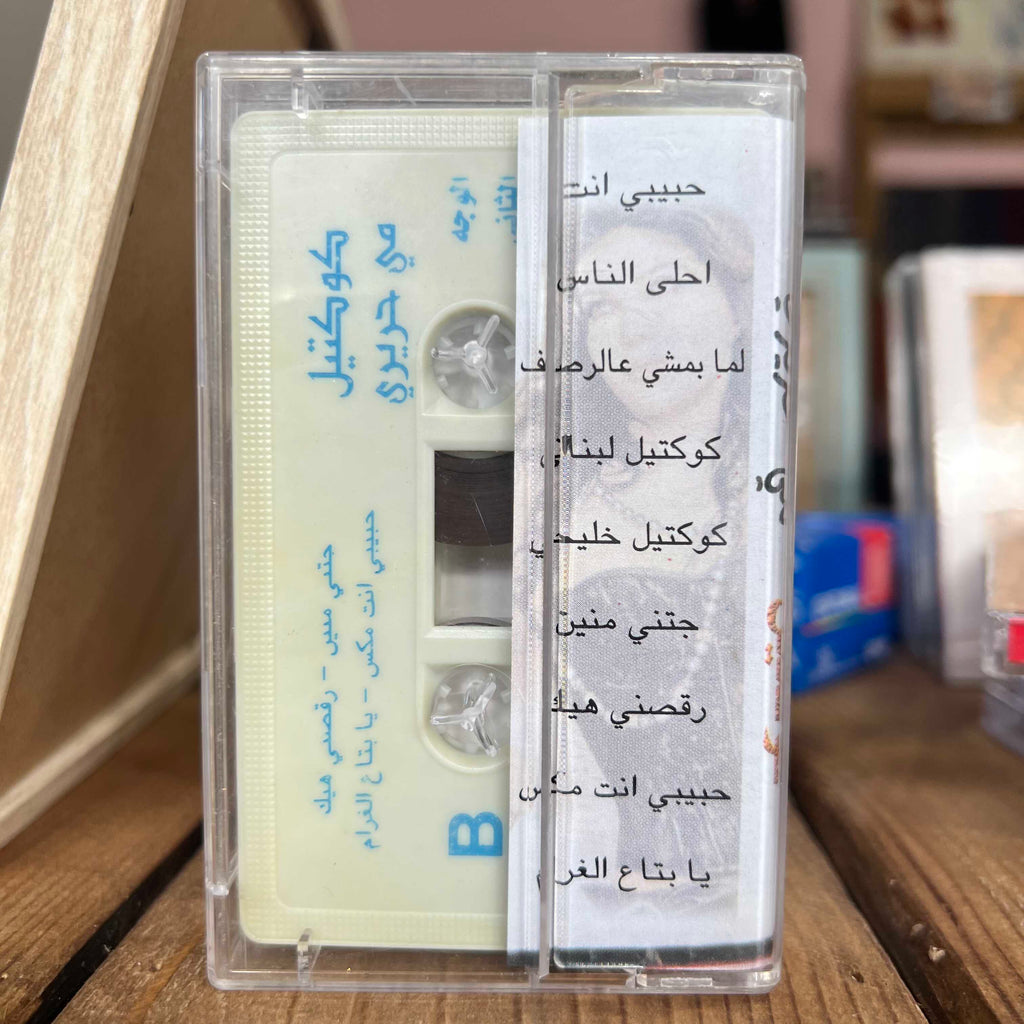 حبيبي انت
احلى الناس
لما بمشي عالرصيف
كوكتيل لبناني
كوكتيل خليجي
جتني منين
رقصني هيك
حبيبي انت مكس
يا بتاع الغرام
كوكتيل
مي حريري
الوجه
الثاني
جتني منين - رقصني هيك
حبيبي انت مكس - يا بتاع الغرام
B